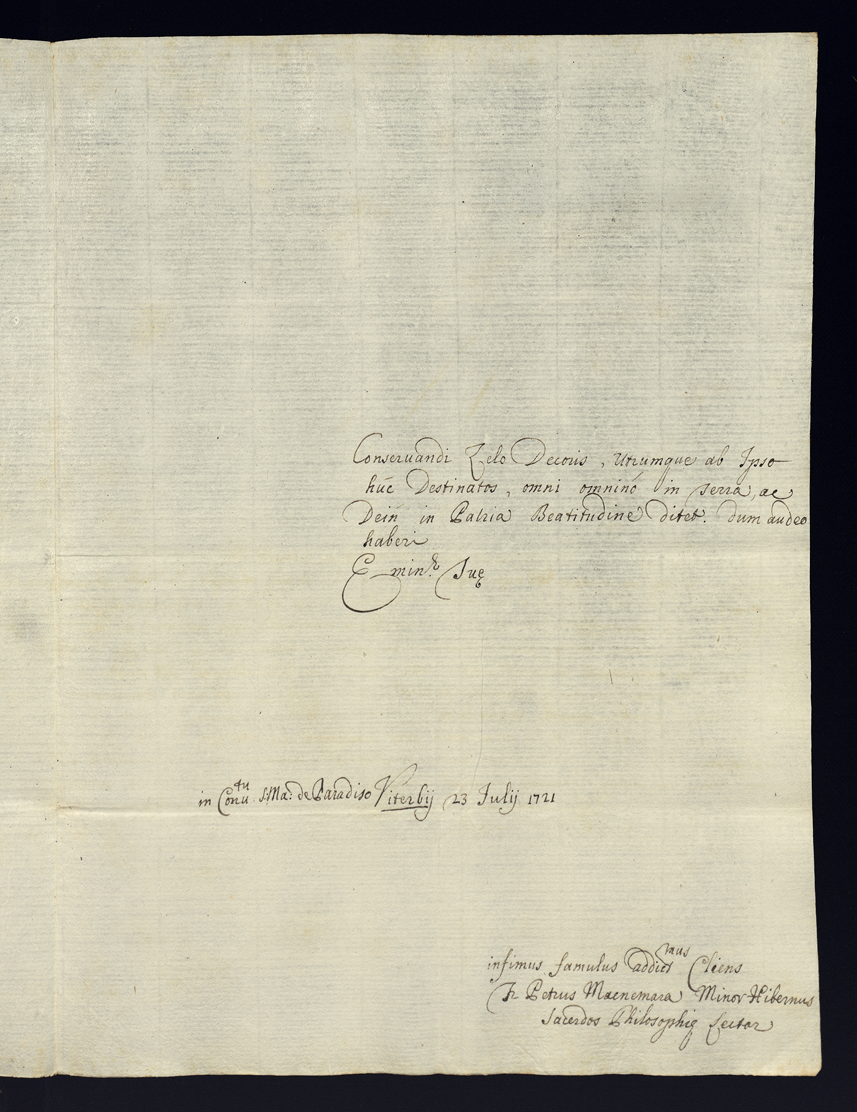 Conseruandi Zelo Decoris, Utrumque ab Ipso
húc Destinatos, omni omninò in terra, ac
Dein in Patria Beatitudine ditet. dum audeo
haberi
Emin.æ Tuę
in Conu.tu S. Ma: de Paradiso Viterbij 23 Julij 1721
infimus famulus addictmus Cliens
Fr Petrus Macnemara Minor Hibernus
Sacerdos Philosophię Lector